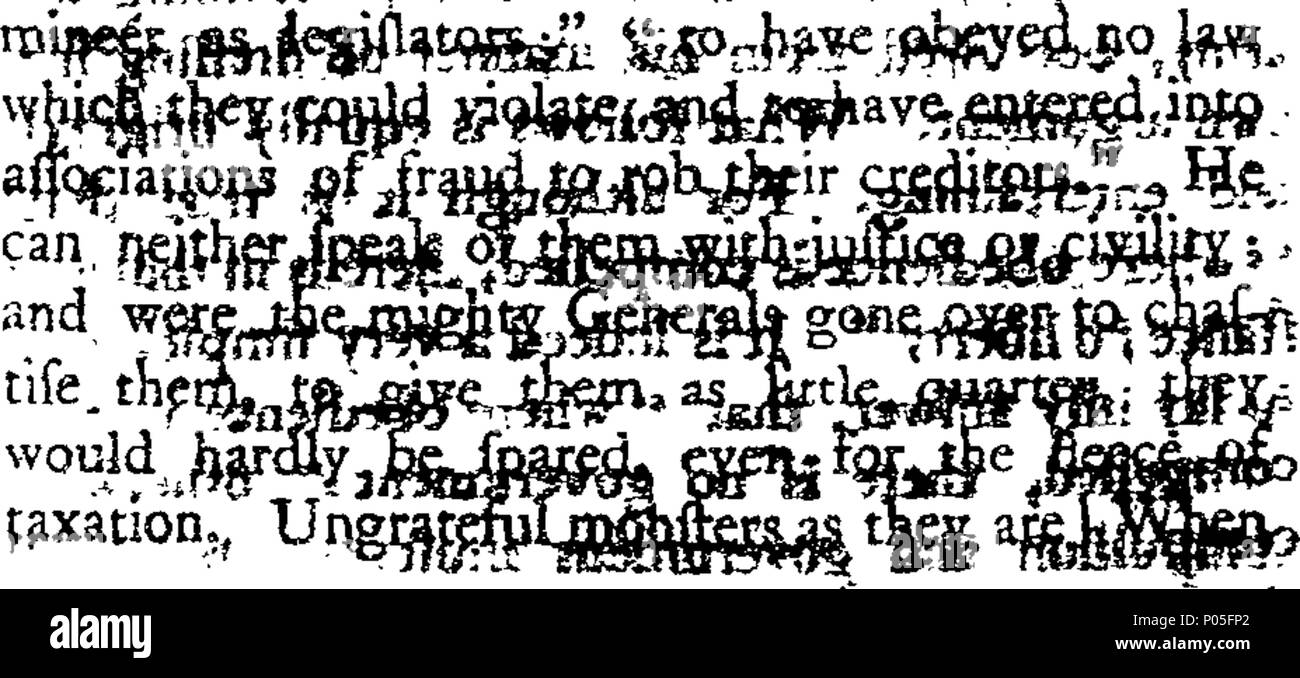 mineer as legiſlators;" "to have obeyed no law
which they could violate, and to have entered into
aſſociations of fraud to rob their creditors." He
can neither ſpeak of them with juſtice or civility;
and were the mighty Generals gone over to chaſ-
tiſe them, to give them as little quarter, they
would hardly be ſpared, even for the fleece of
taxation. Ungrateful monſters as they are! When
alamy
alamy
Image ID: P05FP2
www.alamy.com